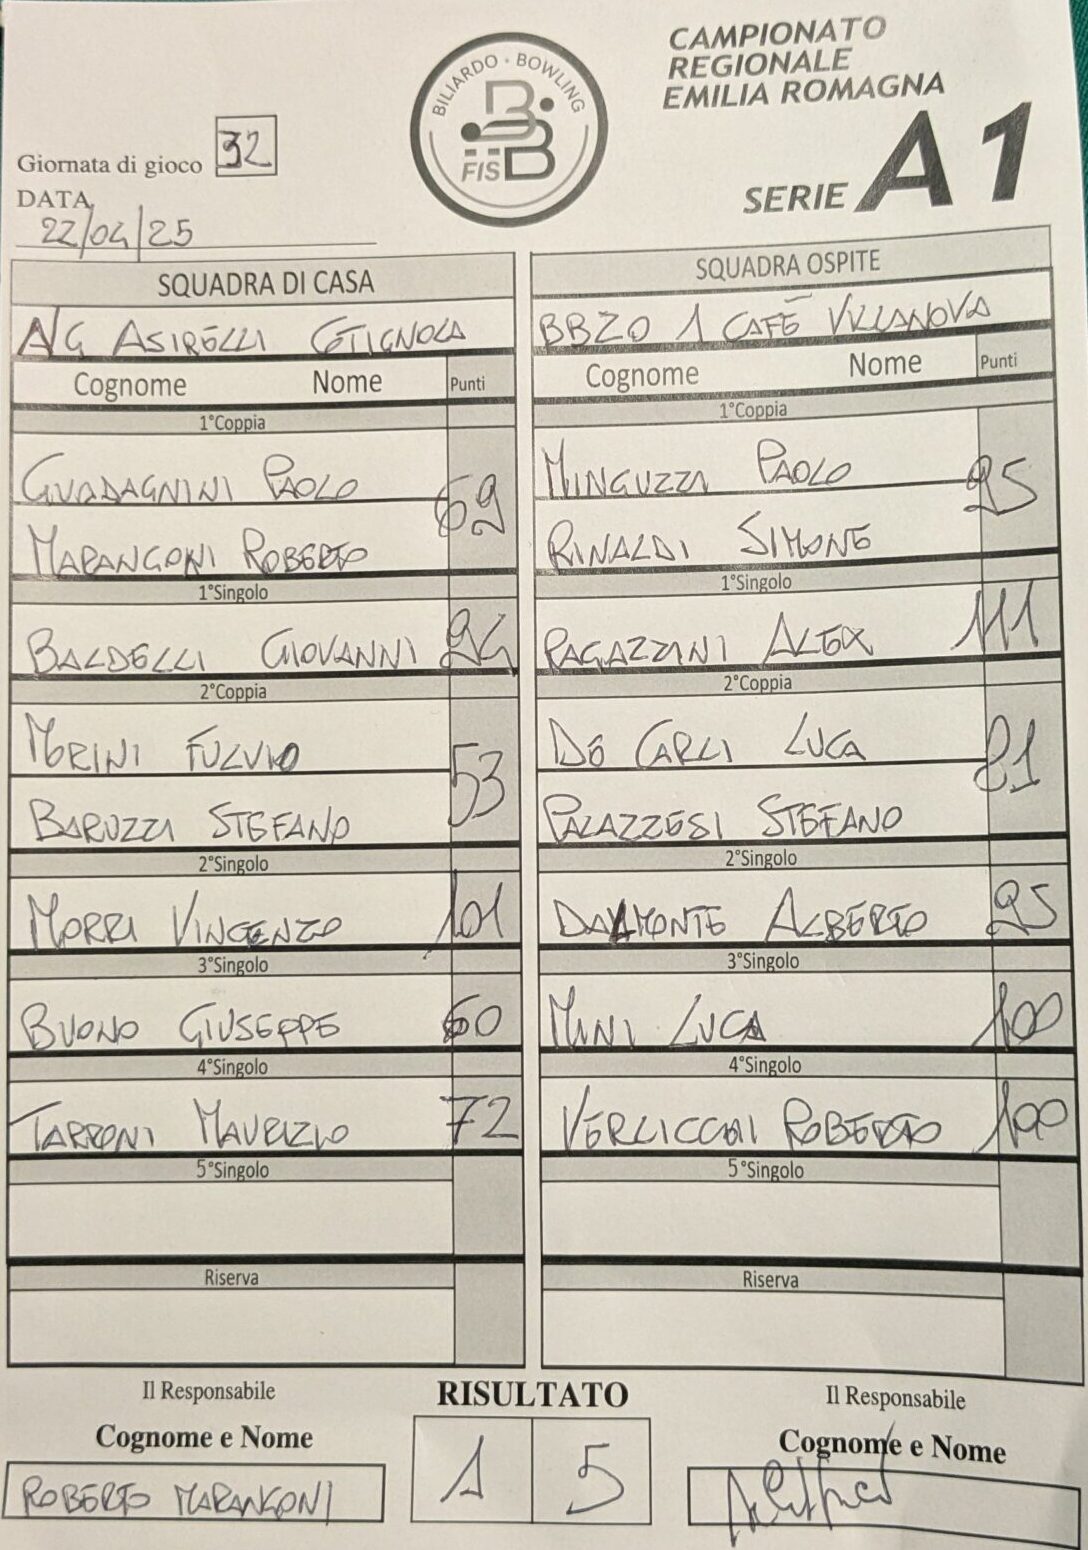 CAMPIONATO
REGIONALE
EMILIA ROMAGNA
SERIE A1
BILIARDO · BOWLING
FISBB
Giornata di gioco 32
DATA
22/04/25
SQUADRA DI CASA
A/G ASIRELLI COTIGNOLA
Cognome Nome Punti
1°Coppia
GUADAGNINI PAOLO
69
MARANGONI ROBERTO
1°Singolo
BALDELLI GIOVANNI 94
2°Coppia
MORINI FULVIO
53
BARUZZI STEFANO
2°Singolo
MORRI VINCENZO 101
3°Singolo
BUONO GIUSEPPE 60
4°Singolo
TARRONI MAURIZIO 72
5°Singolo
Riserva
SQUADRA OSPITE
BBZO 1 CAFÈ VILLANOVA
Cognome Nome Punti
1°Coppia
MINGUZZI PAOLO
95
RINALDI SIMONE
1°Singolo
RAGAZZINI ALEX 111
2°Coppia
DE CARLI LUCA
81
PALAZZESI STEFANO
2°Singolo
DALMONTE ALBERTO 95
3°Singolo
MINI LUCA 100
4°Singolo
VERLICCHI ROBERTO 100
5°Singolo
Riserva
Il Responsabile
Cognome e Nome
ROBERTO MARANGONI
RISULTATO
1 5
Il Responsabile
Cognome e Nome